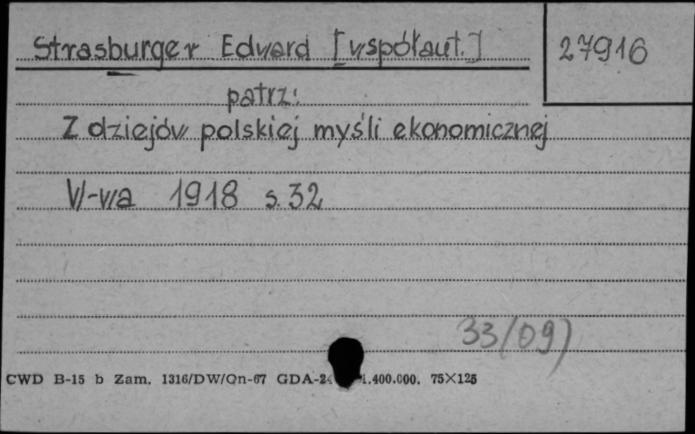 Strasburger Edward [współaut.]
27916
patrz:
Z dziejów polskiej myśli ekonomicznej
W-wa 1918 s. 32
33/09)
CWD B-15 b Zam. 1316/DW/Qn-67 GDA-2 1.400.000. 75×125